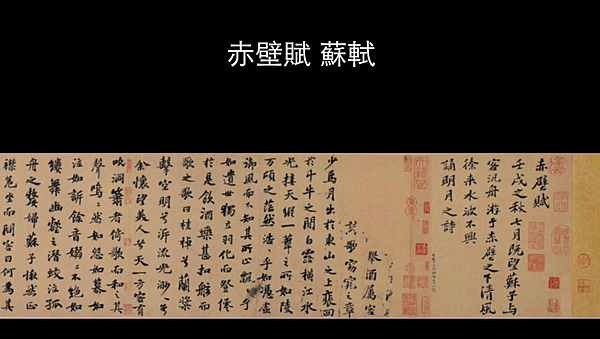 赤壁賦 蘇軾
赤壁賦
壬戌之秋七月既望蘇子与
客泛舟游于赤壁之下清風
徐来水波不興
誦明月之詩
舉酒屬客
歌窈窕之章
少焉月出於東山之上徘徊
於斗牛之間白露横江水
光接天縱一葦之所如陵
万頃之茫然浩浩乎如憑虚
御風而不知其所止飄飄乎
如遺世獨立羽化而登僊
於是飲酒樂甚扣舷而
歌之歌曰桂棹兮蘭槳
擊空明兮泝流光渺渺兮
余懷望美人兮天一方客有
吹洞簫者倚歌而和之其
聲嗚嗚然如怨如慕如
泣如訴餘音嫋嫋不絶如
縷舞幽壑之潛蛟泣孤
舟之嫠婦蘇子愀然正
襟危坐而問客曰何為其